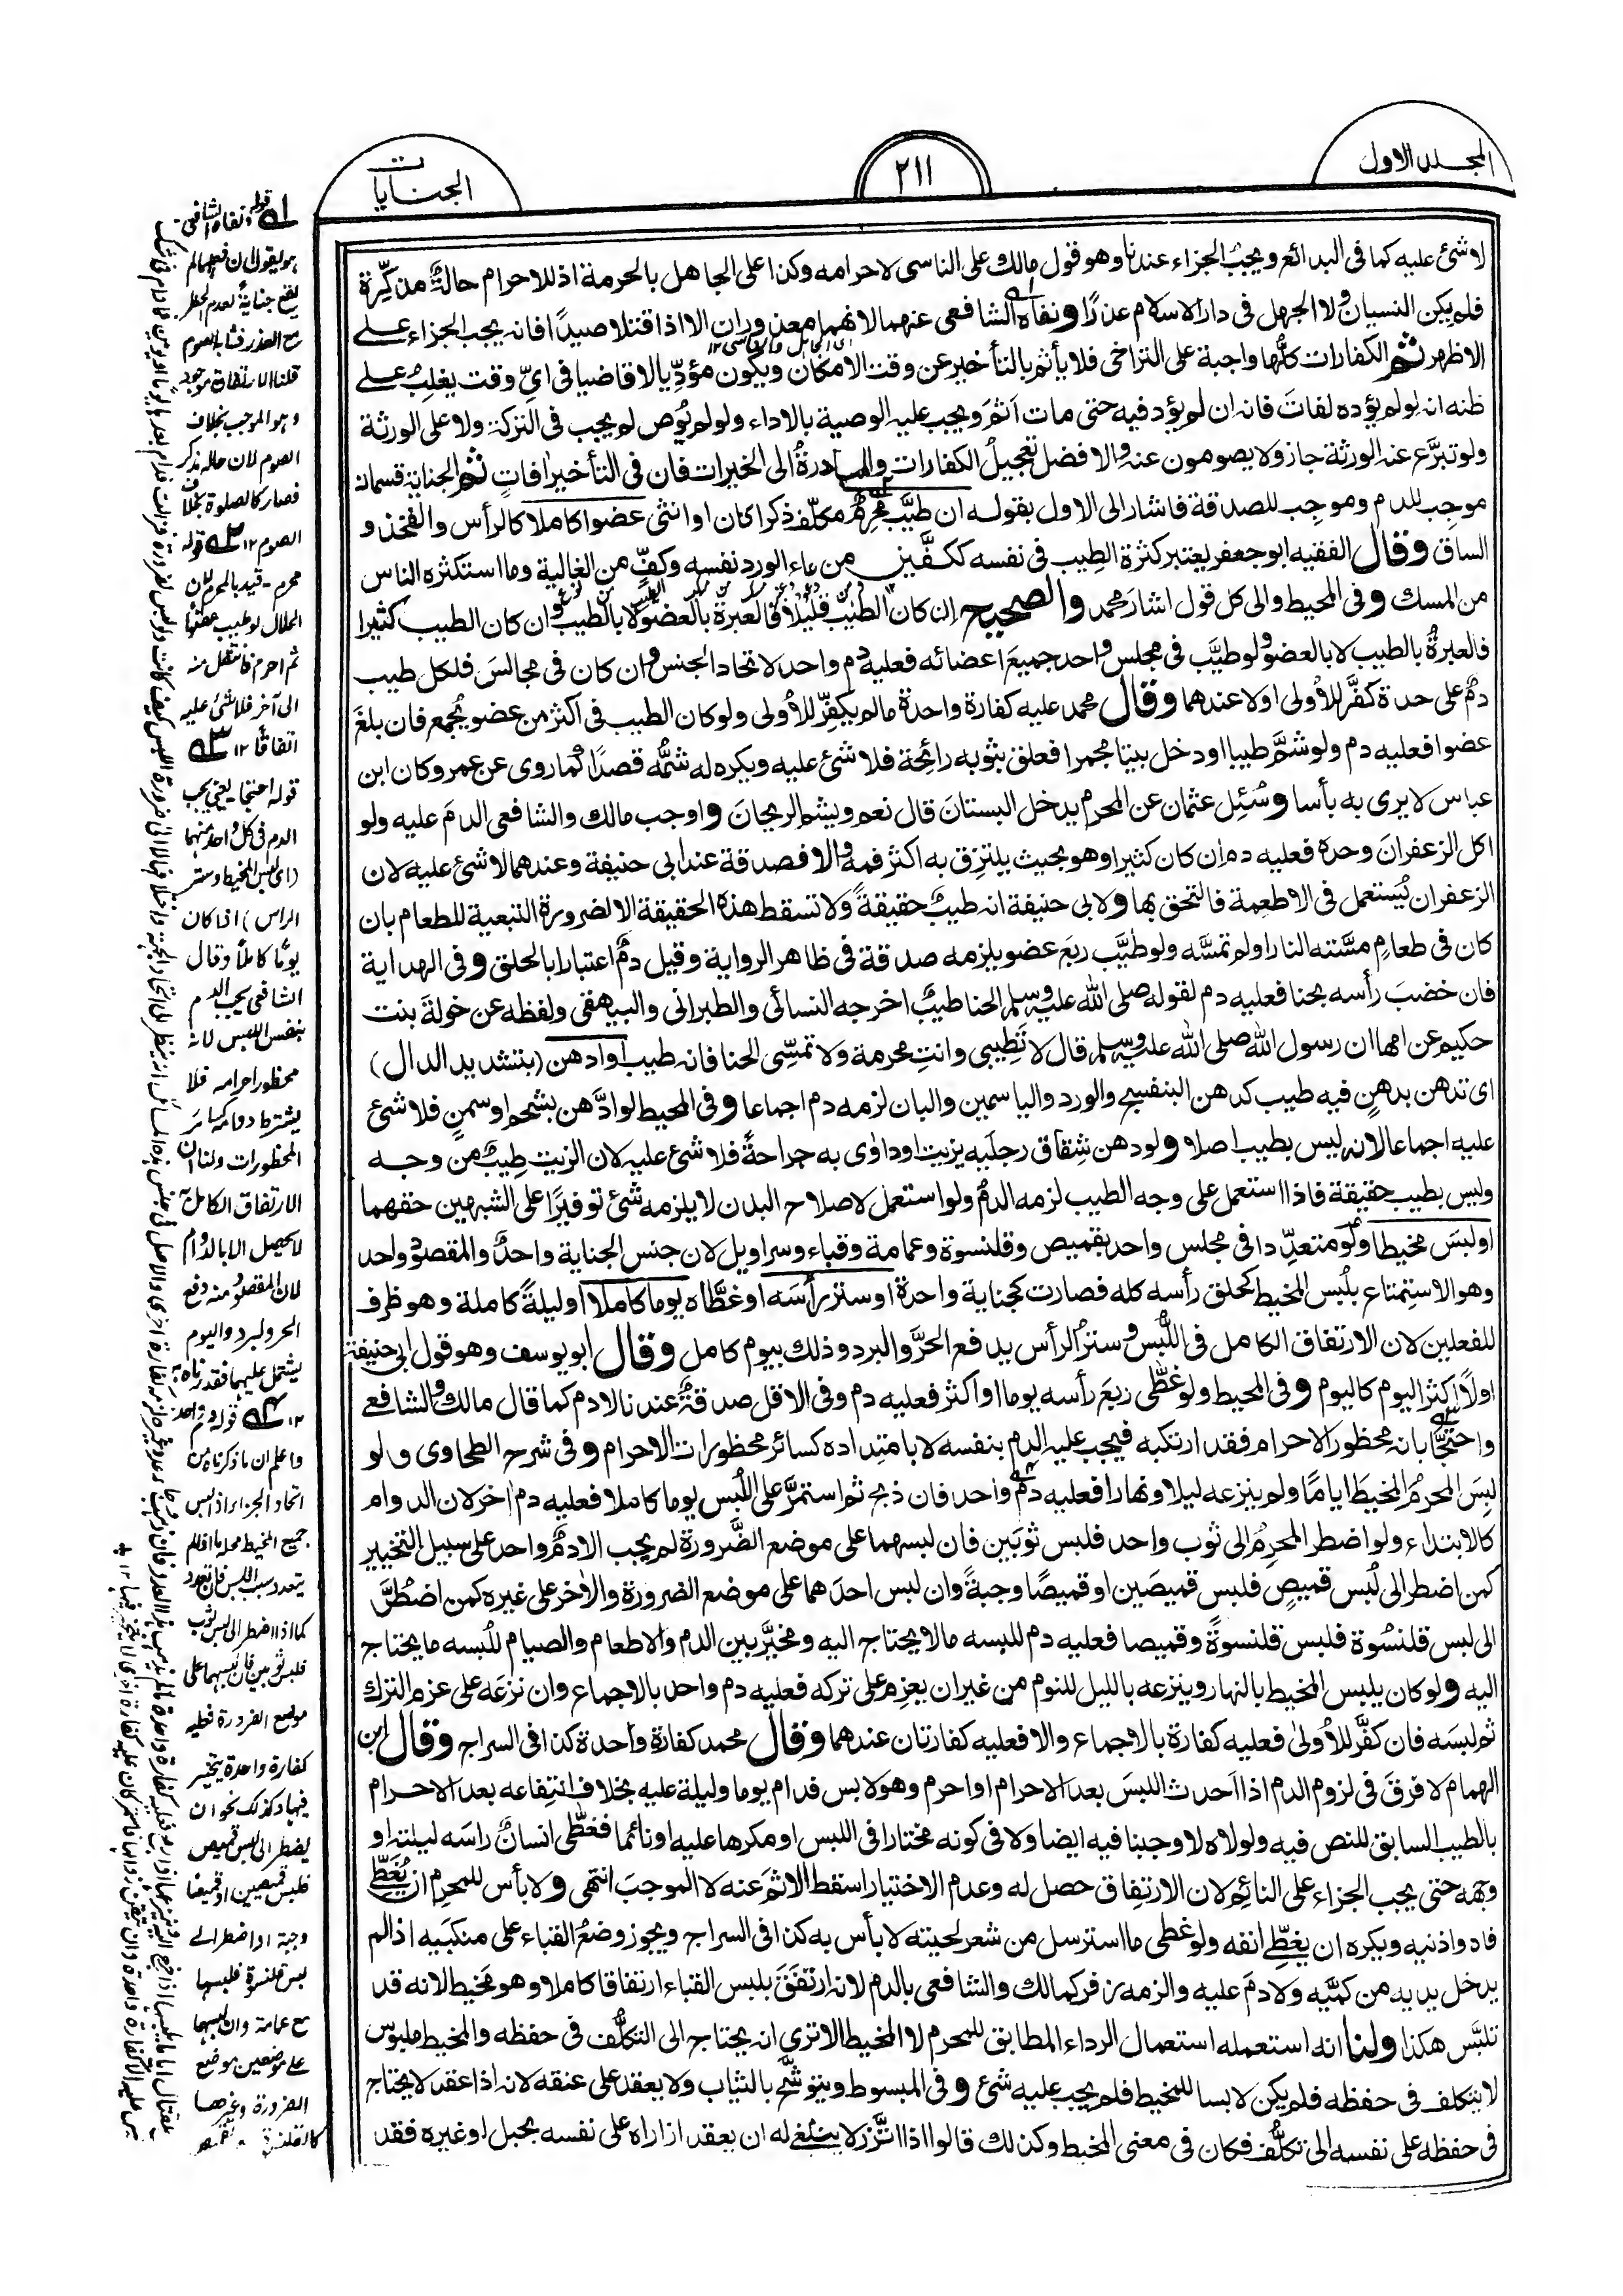 المجلد الاول
٢١١
الجنايات
لا شئ عليه كما فى البدائع ويجب الجزاء عندنا وهو قول مالك على الناسى لاحرامه وكذا على الجاهل بالحرمة اذ للاحرام حالةٌ مذكِّرة
فلم يكن النسيان ولا الجهل فى دار الاسلام عذرًا ونفاه الشافعى عنهما لانهما معذوران الا اذا قتلا صيدًا فانه يجب الجزاء على
الاظهر ثم الكفارات كلُّها واجبة على التراخى فلا يأثم بالتأخير عن وقت الامكان ويكون مؤدِّيا لا قاضيا فى اىِّ وقت يغلِبُ على
ظنه انه لو لم يؤده لفات فانه ان لم يؤد فيه حتى مات اَثمَ ويجب عليه الوصية بالاداء ولو لم يُوص لم يجب فى التركة ولا على الورثة
ولو تبرَّع عنه الورثة جاز ولا يصومون عنه والافضل تعجيلُ الكفارات والمبادرةُ الى الخيرات فان فى التأخير اٰفاتٍ ثم الجناية قسمان
موجب للدم وموجِب للصدقة فاشار الى الاول بقوله ان طيَّب محرِمٌ مكلّف ذكرا كان او انثى عضوا كاملا كالرأس والفخذ و
الساق وقال الفقيه ابو جعفر يعتبر كثرة الطِيب فى نفسه ككفَّين من ماء الورد نفسه وكفٍّ من الغالية وما استكثره الناس
من المسك وفى المحيط والى كل قول اشارَ محمد والصحيح ان كان الطيبُ قليلا فالعبرةُ بالعضو لا بالطيب وان كان الطيب كثيرا
فالعبرةُ بالطيب لا بالعضو ولو طيَّب فى مجلس واحد جميعَ اعضائه فعليه دم واحد لاتحاد الجنس وان كان فى مجالسَ فلكل طيب
دمٌ على حدة كفَّر للأولى اولا عندهما وقال محمد عليه كفارة واحدة ما لم يكفِّر للأولى ولو كان الطيب فى اكثر من عضو يُجمع فان بلغَ
عضوا فعليه دم ولو شمَّ طيبا او دخل بيتا مجمرا فعلق بثوبه رائحة فلا شئ عليه ويكره له شمُّه قصدًا كما روى عن عمر وكان ابن
عباس لا يرى به بأسا وسُئِل عثمان عن المحرم يدخل البستانَ قال نعم ويشم الريحانَ واوجب مالك والشافعى الدمَ عليه ولو
اكل الزعفرانَ وحده فعليه دم ان كان كثيرا وهو بحيث يلتزق به اكثر فمه والا فصدقة عند ابى حنيفة وعندهما لا شئ عليه لان
الزعفران يُستعمل فى الاطعمة فالتحق بها ولابى حنيفة انه طيبٌ حقيقةً ولا تسقط هذه الحقيقة الا لضرورة التبعية للطعام بان
كان فى طعامٍ مسَّته النار او لم تمسَّه ولو طيَّب ربعَ عضو يلزمه صدقة فى ظاهر الرواية وقيل دمٌ اعتبارا بالحلق وفى الهداية
فان خضبَ رأسه بحنا فعليه دم لقوله صلى الله عليه وسلم الحنا طيبٌ اخرجه النسائى والطبرانى والبيهقى ولفظه عن خولةَ بنت
حكيم عن امها ان رسول الله صلى الله عليه وسلم قال لا تَطِيبى وانتِ محرمة ولا تمسِّى الحنا فانه طيب او ادهن (بتشديد الدال)
اى تدهن بدهنٍ فيه طيب كدهن البنفسج والورد والياسمين والبان لزمه دم اجماعا وفى المحيط لو ادَّهن بشحم او سمنٍ فلا شئ
عليه اجماعا لانه ليس بطيب اصلا ولو دهن شِقاق رجلَيه بزيت او داوٰى به جراحةً فلا شئ عليه لان الزيت طِيبٌ من وجه
وليس بطيب حقيقة فاذا استعمل على وجه الطيب لزمه الدمُ ولو استعمل لاصلاح البدن لا يلزمه شئ توفيرًا على الشبهين حقهما
او لبسَ مخيطا ولو متعدِّدا فى مجلس واحد بقميص وقلنسوة وعمامة وقباء وسراويل لان جنس الجناية واحدٌ والمقصود واحد
وهو الاستِمتاع بلُبس المخيط كحلق رأسه كله فصارت كجناية واحدة او ستر رأسَه او غطَّاه يوما كاملا او ليلةً كاملة وهو ظرف
للفعلين لان الارتفاق الكامل فى اللُّبس وستر الرأس يدفع الحرَّ والبرد وذلك بيوم كامل وقال ابو يوسف وهو قول ابى حنيفة
اولًا اكثر اليوم كاليوم وفى المحيط ولو غطّى ربعَ رأسه يوما او اكثر فعليه دم وفى الاقل صدقةٌ عندنا لا دم كما قال مالك والشافعى
واحتجَّا بانه محظور الاحرام فقد ارتكبه فيجب عليه الدم بنفسه لا بامتداده كسائر محظورات الاحرام وفى شرح الطحاوى ولو
لبِسَ المحرمُ المخيطَ اياما ولم ينزعه ليلا ونهارا فعليه دمٌ واحد فان ذبح ثم استمرَّ على اللُبس يوما كاملا فعليه دم اٰخر لان الدوام
كالابتداء ولو اضطر المحرِمُ الى ثوب واحد فلبس ثوبَين فان لبسهما على موضع الضَّرورة لم يجب الا دمٌ واحد على سبيل التخيير
كمن اضطر الى لُبس قميصٍ فلبس قميصَين او قميصًا وجبةً وان لبس احدَهما على موضع الضرورة والاٰخر على غيره كمن اضطُرَّ
الى لبس قلنسُوة فلبس قلنسوةً وقميصا فعليه دم للبسه ما لا يحتاج اليه ومخيَّر بين الدم والاطعام والصيام للُبسه ما يحتاج
اليه ولو كان يلبس المخيط بالنهار وينزعه بالليل للنوم من غير ان يعزِم على تركه فعليه دم واحد بالاجماع وان نزعَه على عزم الترك
ثم لبسَه فان كفَّر للأولى فعليه كفارة بالاجماع والا فعليه كفارتان عندهما وقال محمد كفارة واحدة كذا فى السراج وقال ابن
الهمام لا فرقَ فى لزوم الدم اذا اَحدث اللبسَ بعد الاحرام او احرم وهو لابس فدام يوما وليلة عليه بخلاف انتِفاعه بعد الاحرام
بالطيب السابق للنص فيه ولولاه لاوجبنا فيه ايضا ولا فى كونه مختارا فى اللبس او مكرها عليه او نائما فغطَّى انسانٌ راسَه ليلته او
وجهه حتى يجب الجزاء على النائم لان الارتفاق حصل له وعدم الاختيار اسقط الاثمَ عنه لا الموجبَ انتهى ولا بأس للمحرم ان يُغَطِّى
فاه واذنيه ويكره ان يغطِّى انفه ولو غطى ما استرسل من شعر لحيته لا بأس به كذا فى السراج ويجوز وضعُ القباء على منكبَيه اذا لم
يدخل يديه من كمَّيه ولا دمَ عليه والزمه زفر كمالك والشافعى بالدم لانه ارتَفَقَ بلبس القباء ارتفاقا كاملا وهو مخيط لانه قد
تلبَّس هكذا ولنا انه استعمله استعمال الرداء المطابق للمحرم لا المخيط الا ترى انه يحتاج الى التكلُّف فى حفظه والمخيط ملبوس
لا يتكلف فى حفظه فلم يكن لابسا للمخيط فلم يجب عليه شئ وفى المبسوط ويتوشَّح بالثياب ولا يعقد على عنقه لانه اذا عقد لا يحتاج
فى حفظه على نفسه الى تكلُّف فكان فى معنى المخيط وكذلك قالوا اذا اتَّزر لا ينبغى له ان يعقد ازاراه على نفسه بحبل او غيره فقد
قوله ونفاه الشافعى
هو يقول ان فعلهما لم
يقع جناية لعدم الحظر
مع العذر فشابه الصوم
قلنا الارتفاق موجود
وهو الموجب بخلاف
الصوم لان حاله مذكر
فصار كالصلوة بخلاف
الصوم ١٢ قوله
محرم - قيد بالمحرم لان
الحلال لو طيب عضوًا
ثم احرم فانتقل منه
الى آخر فلا شئ عليه
اتفاقًا ١٢
قوله احتجا يعنى يجب
الدم فى كل واحد منهما
(اى لبس المخيط وستر
الراس) اذا كان
يومًا كاملًا وقال
الشافعى يجب الدم
بنفس اللبس لانه
محظور احرامه فلا
يشترط دوامه كسائر
المحظورات ولنا ان
الارتفاق الكامل
لا يحصل الا بالدوام
لان المقصود منه دفع
الحر والبرد واليوم
يشتمل عليهما فقدرناه به
١٢ قوله دم واحد
واعلم ان ما ذكرناه من
اتحاد الجزاء اذا لبس
جميع المخيط محله ما اذا لم
يتعدد سبب اللبس فان تعدد
كما اذا اضطر الى لبس ثوب
فلبس ثوبين فان لبسهما على
موضع الضرورة فعليه
كفارة واحدة يتخير
فيها وكذلك نحو ان
يضطر الى لبس قميص
فلبس قميصين او قميصا
وجبة او اضطر الى
لبس قلنسوة فلبسها
مع عمامة وان لبسهما
على موضعين موضع
الضرورة وغيرها
كالقلنسوة